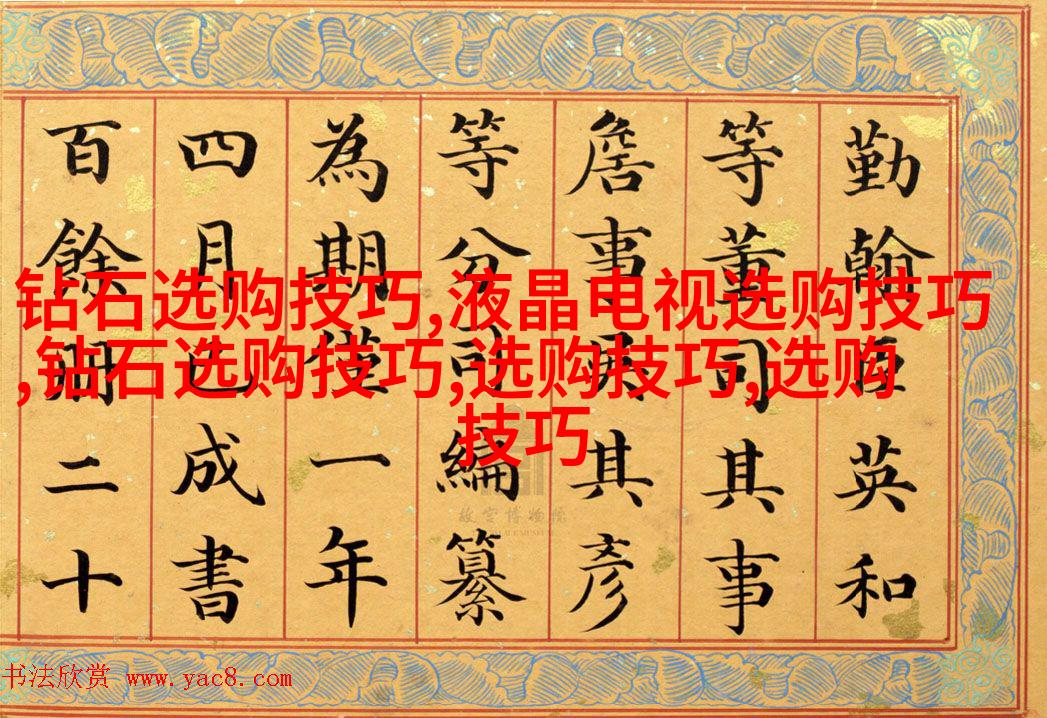 勤翰臣英和
等董司其事
詹事其彥
等分司編纂
為期僅一年
四月已成書
百餘冊二十
钻石选购技巧,液晶电视选购技巧
,钻石选购技巧,选购技巧,选购
技巧
故宫博物院
书法欣赏 www.yac8.com